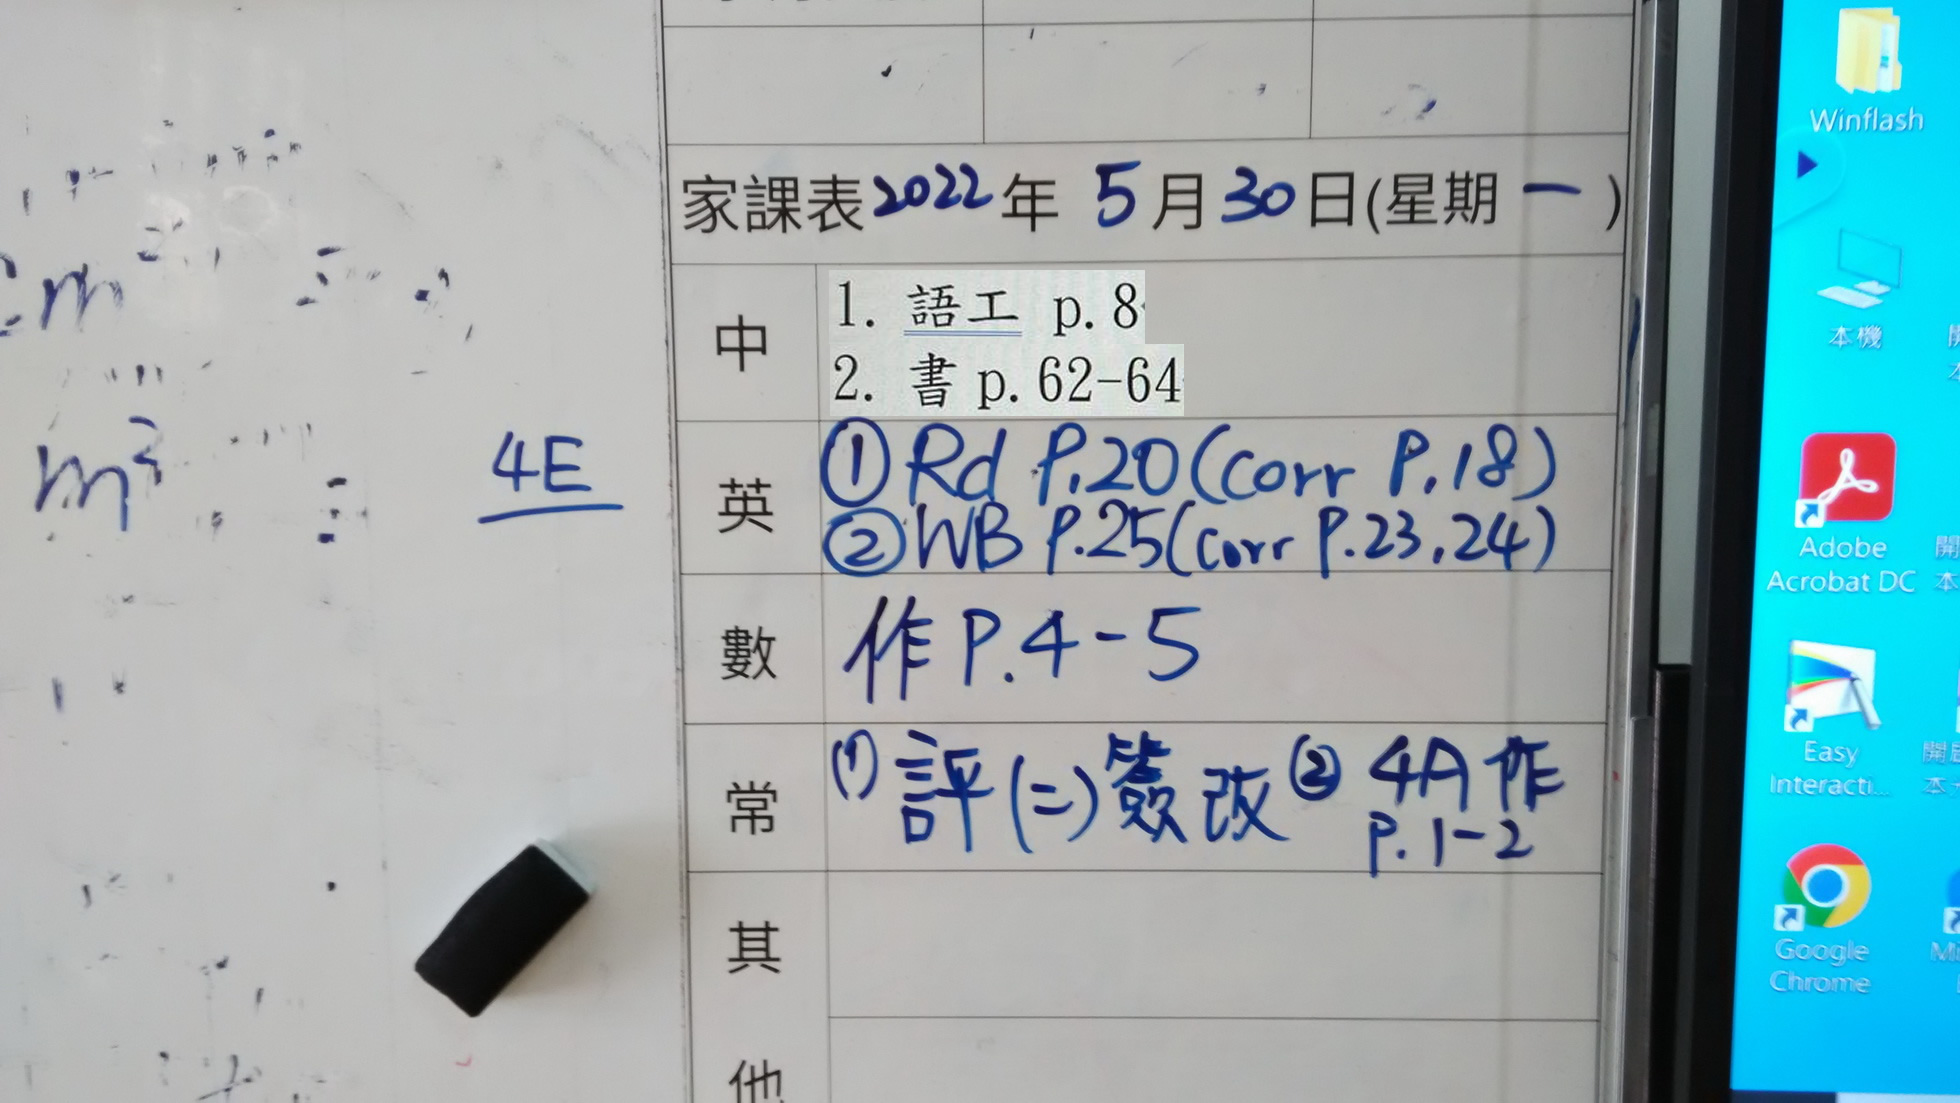 家課表2022年 5月30日(星期一)
中
1. 語工 p.8
2. 書 p.62-64
英
① Rd P.20(corr P.18)
② WB P.25(corr P.23,24)
數
作P.4-5
常
(1) 評(二)簽改 ② 4A作
P.1-2
其
他
4E
cm²
m²
Winflash
本機
Adobe
Acrobat DC
Easy
Interacti...
Google
Chrome